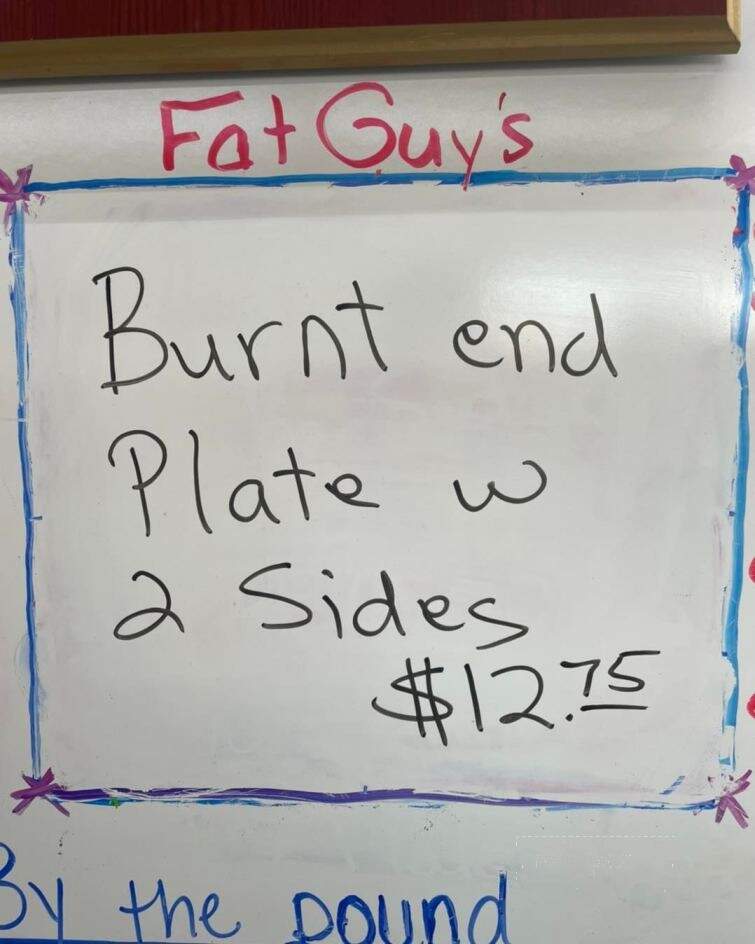 Fat Guy's
Burnt end
Plate w
2 Sides
$12.75
By the pound